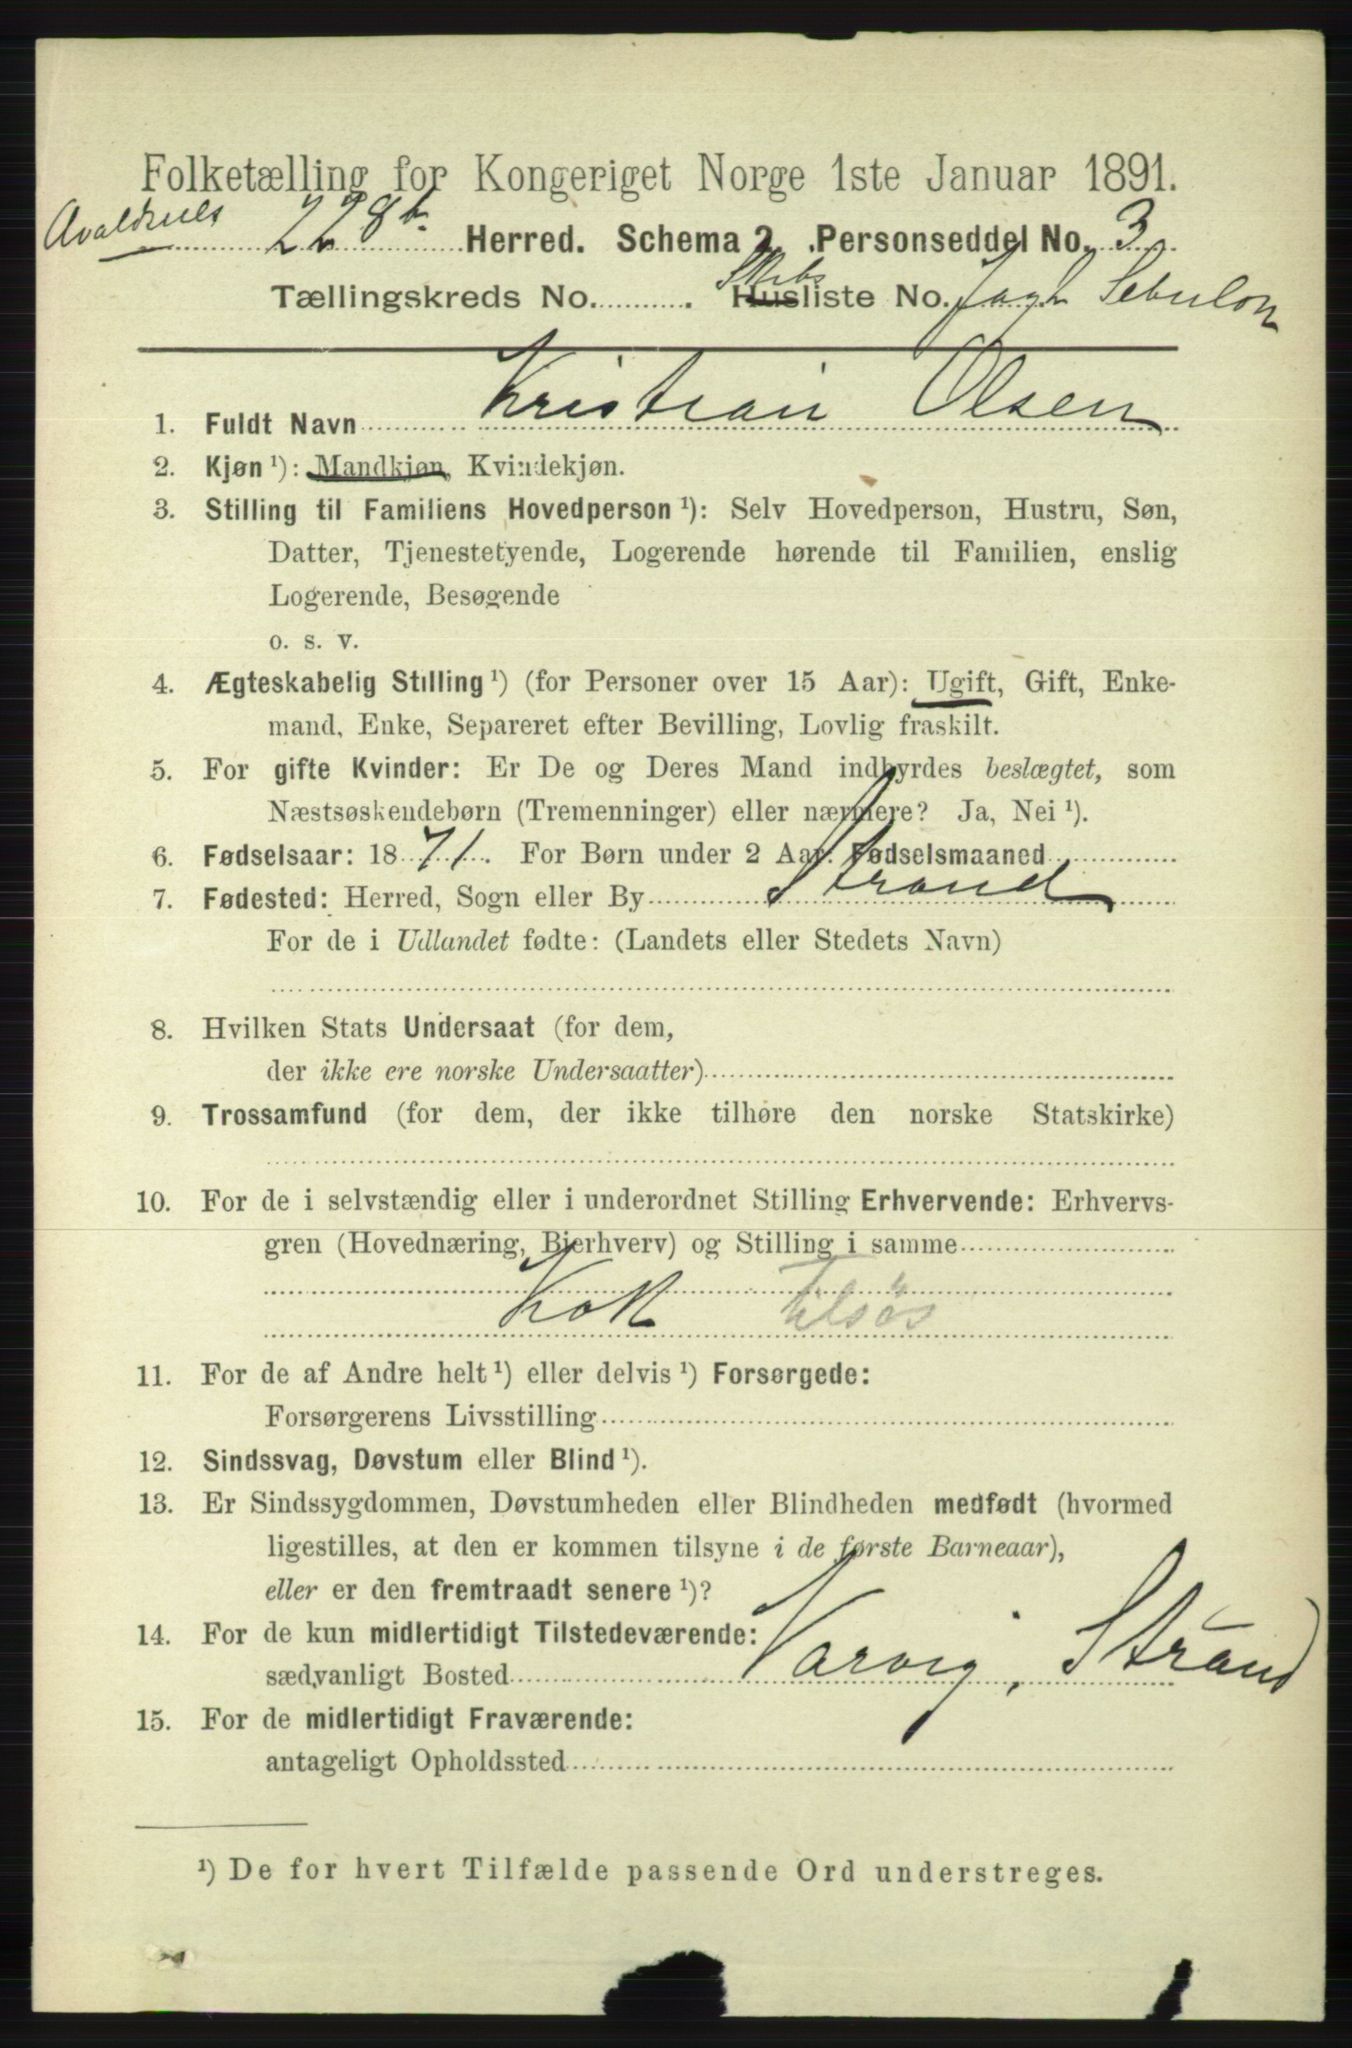 Folketælling for Kongeriget Norge 1ste Januar 1891.
Avaldsnes 228b Herred. Schema 2. Personseddel No. 3
Tællingskreds No. Skibs Husliste No. Jagt Sebulon
1. Fuldt Navn Kristian Olsen
2. Kjøn ¹): Mandkjøn, Kvindekjøn.
3. Stilling til Familiens Hovedperson ¹): Selv Hovedperson, Hustru, Søn,
Datter, Tjenestetyende, Logerende hørende til Familien, enslig
Logerende, Besøgende
o. s. v.
4. Ægteskabelig Stilling ¹) (for Personer over 15 Aar): Ugift, Gift, Enke-
mand, Enke, Separeret efter Bevilling, Lovlig fraskilt.
5. For gifte Kvinder: Er De og Deres Mand indbyrdes beslægtet, som
Næstsøskendebørn (Tremenninger) eller nærmere? Ja, Nei ¹).
6. Fødselsaar: 1871. For Børn under 2 Aar: Fødselsmaaned
7. Fødested: Herred, Sogn eller By Strand
For de i Udlandet fødte: (Landets eller Stedets Navn)
8. Hvilken Stats Undersaat (for dem,
der ikke ere norske Undersaatter)
9. Trossamfund (for dem, der ikke tilhøre den norske Statskirke)
10. For de i selvstændig eller i underordnet Stilling Erhvervende: Erhvervs-
gren (Hovednæring, Bierhverv) og Stilling i samme
Kok tilsøs
11. For de af Andre helt ¹) eller delvis ¹) Forsørgede:
Forsørgerens Livsstilling
12. Sindssvag, Døvstum eller Blind ¹).
13. Er Sindssygdommen, Døvstumheden eller Blindheden medfødt (hvormed
ligestilles, at den er kommen tilsyne i de første Barneaar),
eller er den fremtraadt senere ¹)?
14. For de kun midlertidigt Tilstedeværende:
sædvanligt Bosted Varvig, Strand
15. For de midlertidigt Fraværende:
antageligt Opholdssted
¹) De for hvert Tilfælde passende Ord understreges.